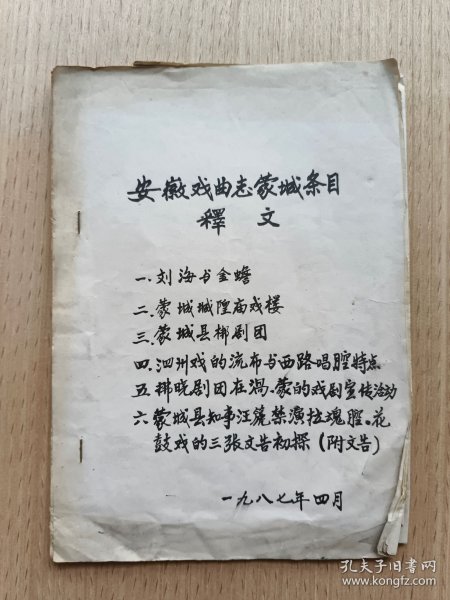 安徽戏曲志蒙城条目
釋文
一、刘海与金蟾
二、蒙城城隍庙戏楼
三、蒙城县梆剧团
四、泗州戏的流布与西路唱腔特点
五、拂晓剧团在涡、蒙的戏剧宣传活动
六、蒙城县知事汪篪禁演拉魂腔、花
鼓戏的三张文告初探（附文告）
一九八七年四月
孔夫子旧书网
www.kongfz.com